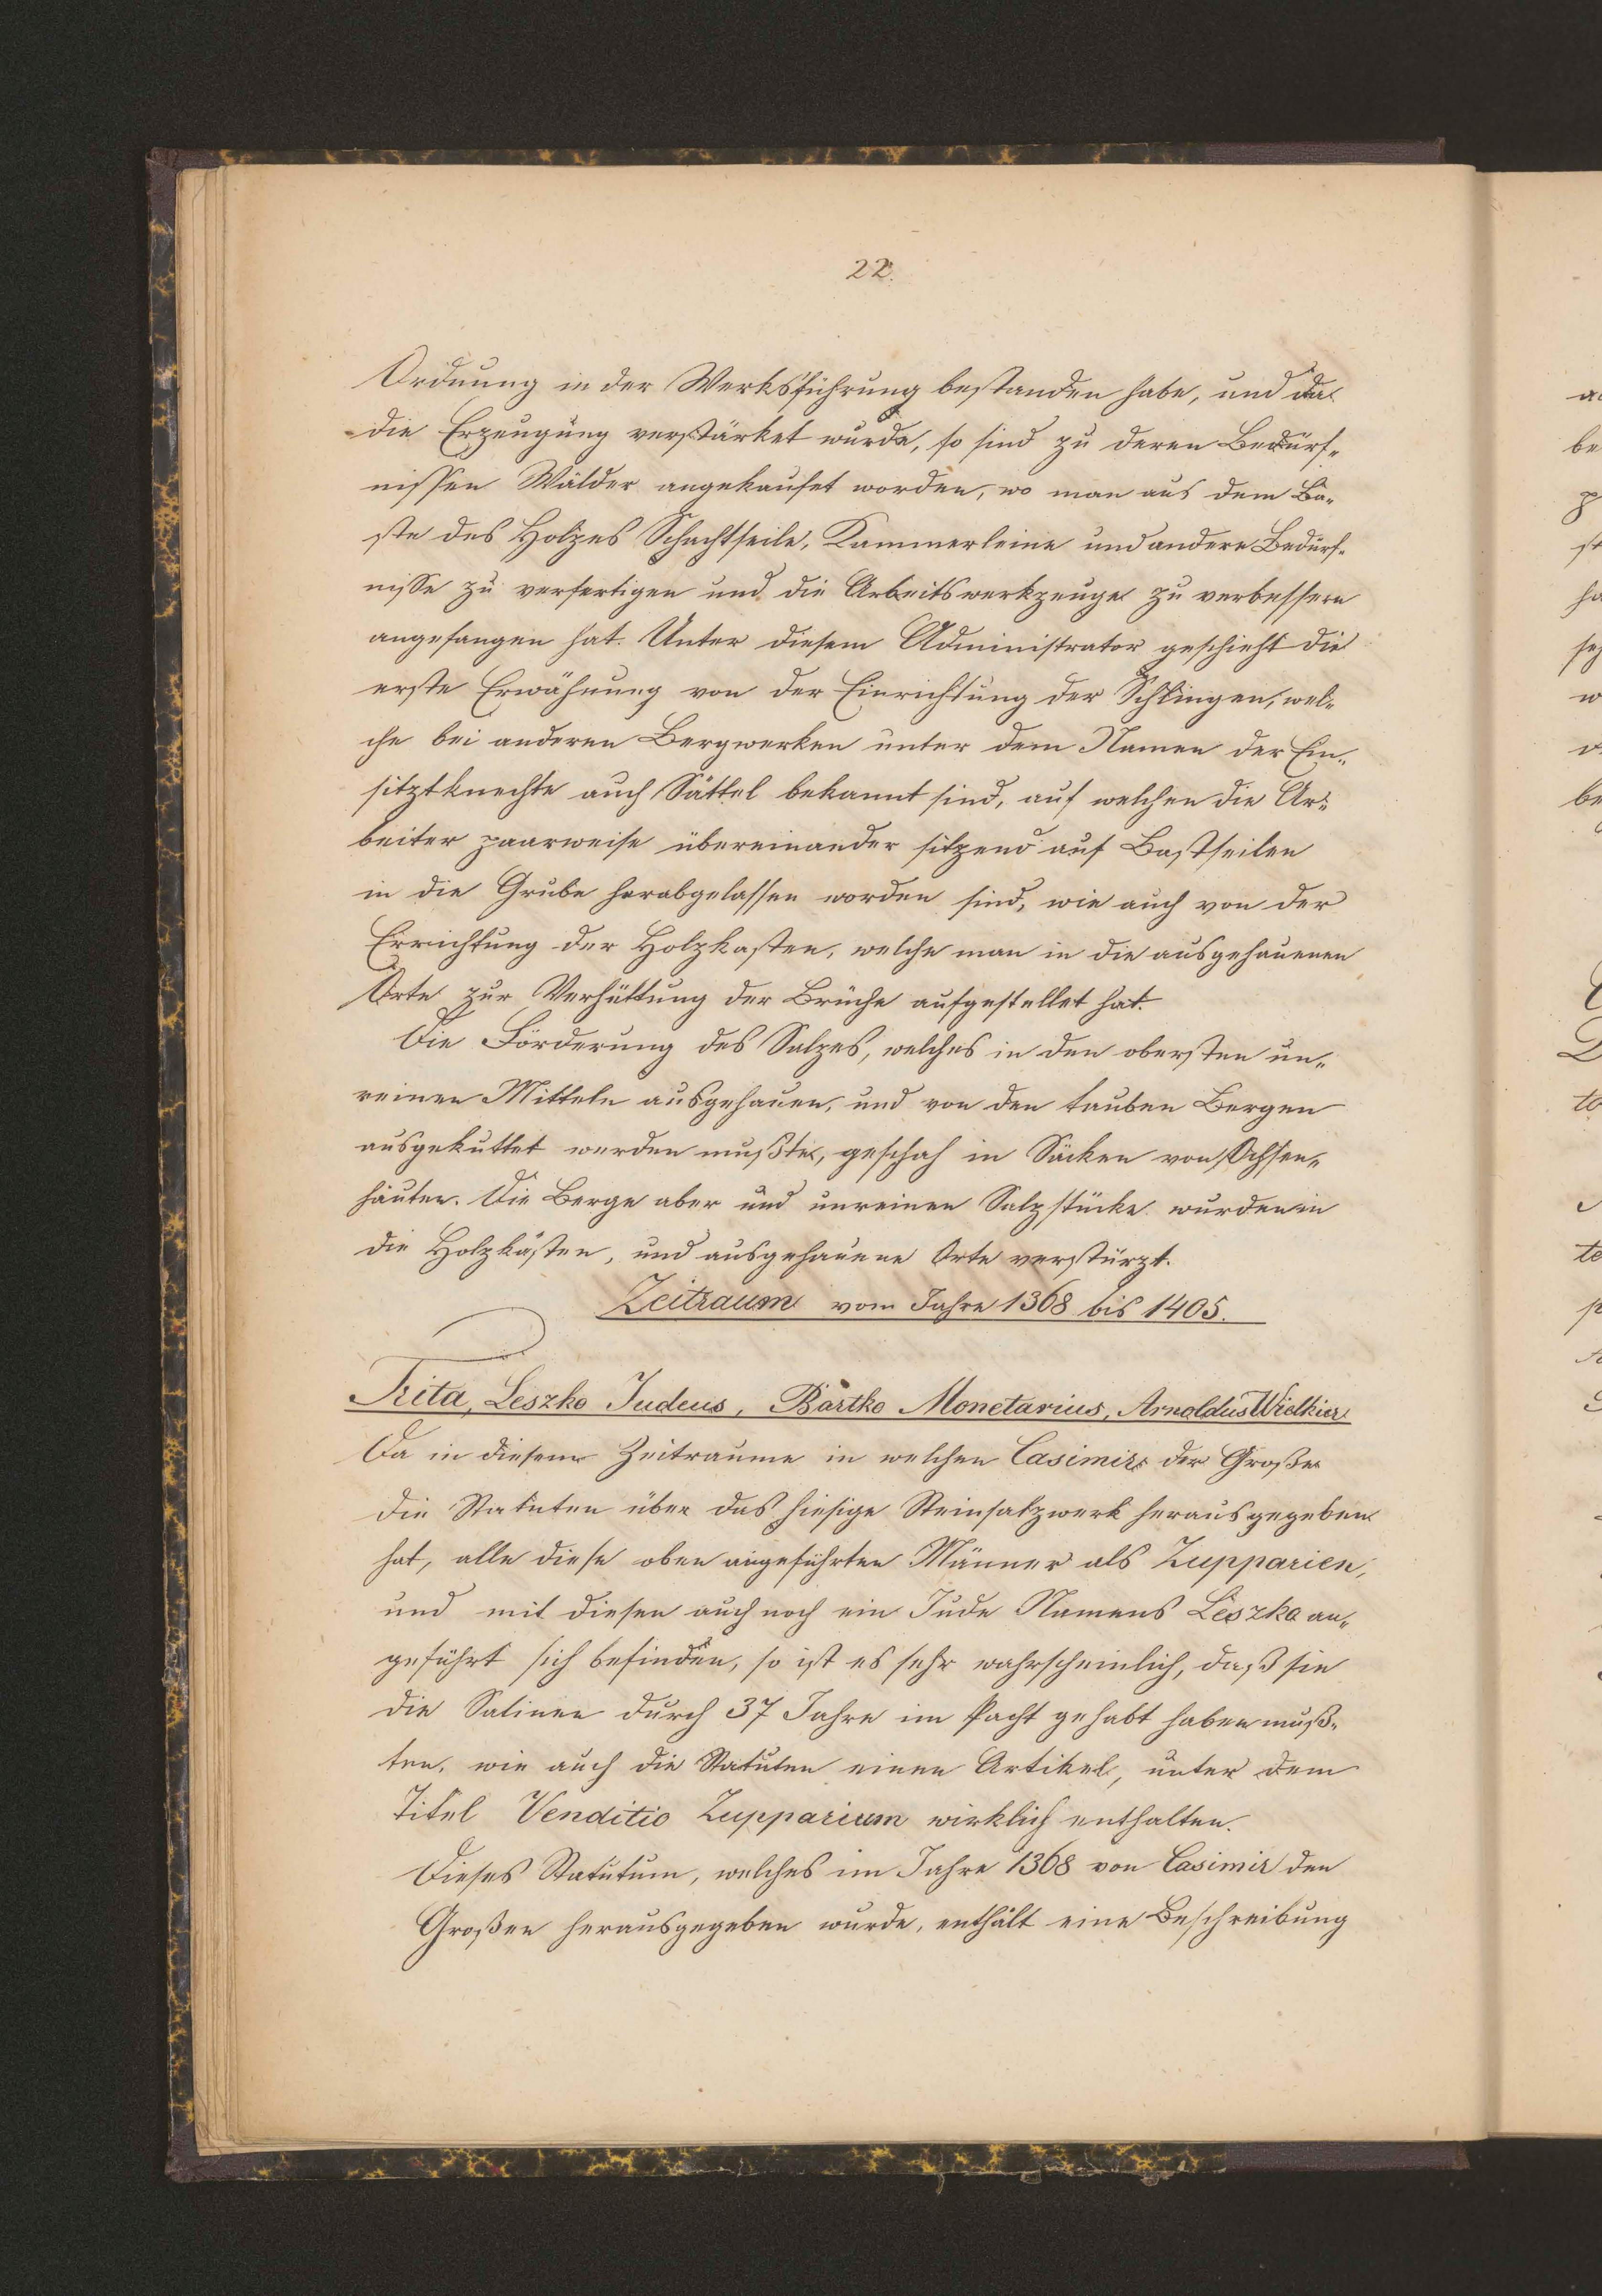 22.
Ordnung in der Werksführung bestanden habe, und da
die Erzeugung verstärket wurde, so sind zu deren Bedürf-
nissen Wälder angekaufet worden, wo man aus dem Ba-
ste des Holzes Schachtseile, Kammerleine und andere Bedürf-
nisse zu verfertigen und die Arbeitswerkzeuge zu verbessern
angefangen hat. Unter diesem Administrator geschieht die
erste Erwähnung von der Einrichtung der Schlingen, wel-
che bei anderen Bergwerken unter dem Namen der Ein-
sitztknechte auch Sättel bekannt sind, auf welchen die Ar-
beiter paarweise übereinander sitzend auf Bastseilen
in die Grube herabgelassen worden sind, wie auch von der
Errichtung der Holzkasten, welche man in die ausgehauenen
Örte zur Verhüttung der Brüche aufgestellet hat.
Die Förderung des Salzes, welches in den obersten un-
reinen Mitteln ausgehauen, und von den tauben Bergen
ausgekuttet werden mußte, geschah in Säcken von Ochsen-
häuten. Die Berge aber und unreinen Salzstücke wurden in
die Holzkästen, und ausgehauene Orte verstürzt.
Zeitraum vom Jahre 1368 bis 1405.
Trita, Leszko Judeus, Bartko Monetarius, Arnoldus Wielkier
Da in diesem Zeitraume in welchen Casimir der Große
die Statuten über das hiesige Steinsalzwerk herausgegeben
hat, alle diese oben angeführten Männer als Zupparien,
und mit diesen auch noch ein Jude Namens Leszko an-
geführt sich befinden, so ist es sehr wahrscheinlich, daß sie
die Salinen durch 37 Jahre im Pacht gehabt haben muß-
ten, wie auch die Statuten einen Artikel, unter dem
Titel Venditio Zupparium wirklich enthalten.
Dieses Statutum, welches im Jahre 1368 von Casimir den
Großen herausgegeben wurde, enthält eine Beschreibung